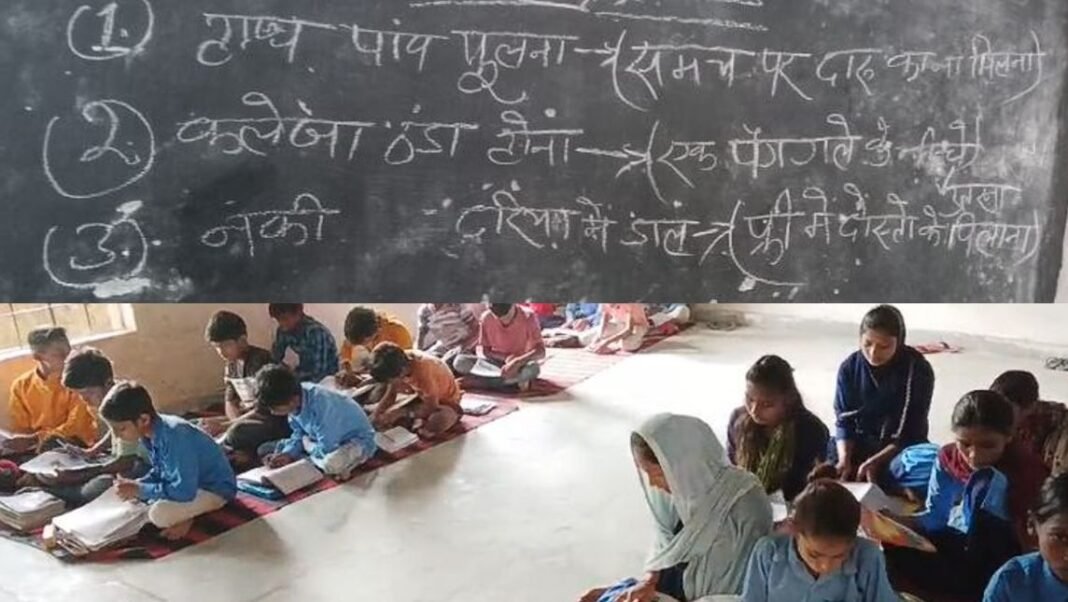 (1) हाथ पांव फूलना → (समय पर दारू का ना मिलना)
(2.) कलेजा ठंडा होना → (एक पेग गले के नीचे
(3). नेकी दरिया में डाल → (फ्री में दोस्तो को पिलाना)